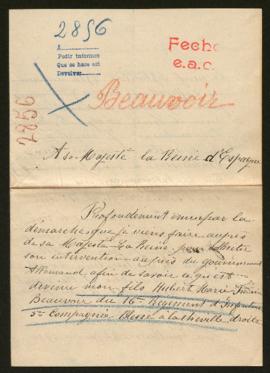 2856
Fecho
e.a.c.
A
Pedir informes
Que se hace así
Devolver
2856
Beauvoir
A sa Majesté la Reine d'Espagne
Profondément émue par la
démarche que je viens faire auprès
de sa Majesté La Reine pour
son intervention auprès du gouvernement
Allemand, afin de savoir ce qu'est
devenu mon fils Hubert Marie
Beauvoir du 16e Régiment d'Infanterie
5e Compagnie Blessé à la cheville droite